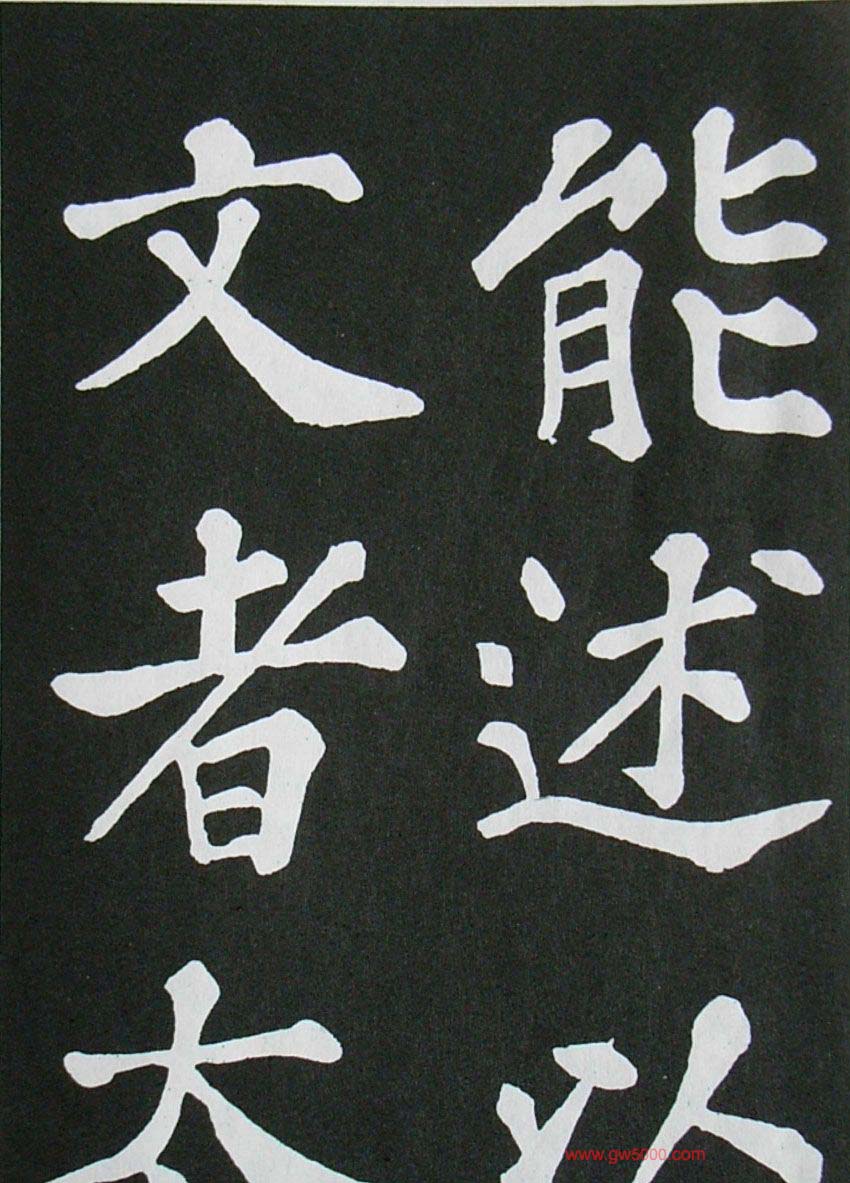 能述以
文者太
www.gw5000.com